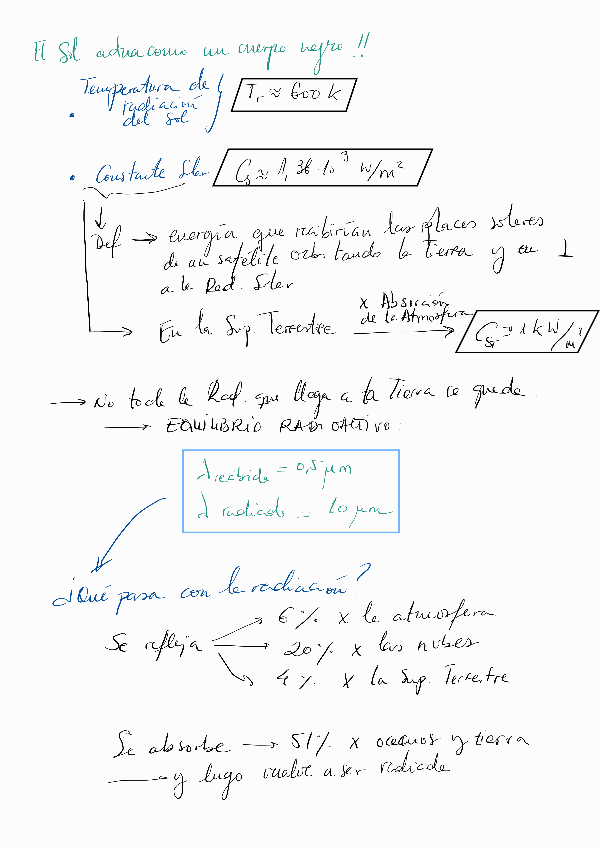 El Sol actua como un cuerpo negro!!
• Temperatura de radiación del Sol
Tr ≈ 600 K
• Constante Solar
Cs ≈ 1,36·10³ W/m²
Def → energía que recibirían las placas solares
de un satélite orbitando la tierra y en ⊥
a la Rad. Solar
x Absorción
de la Atmosfera
→ En la Sup. Terrestre →
≈ 1 kW/m²
→ No toda la Rad. que llega a la Tierra se queda.
→ EQUILIBRIO RADIOACTIVO:
λ recibida = 0,5 μm
λ radiada = 10 μm
¿Qué pasa con la radiación?
→ 6% x la atmosfera
Se refleja → 20% x las nubes
→ 4% x la Sup. Terrestre
Se absorbe → 51% x oceanos y tierra
→ y lugo vuelve a ser radiada